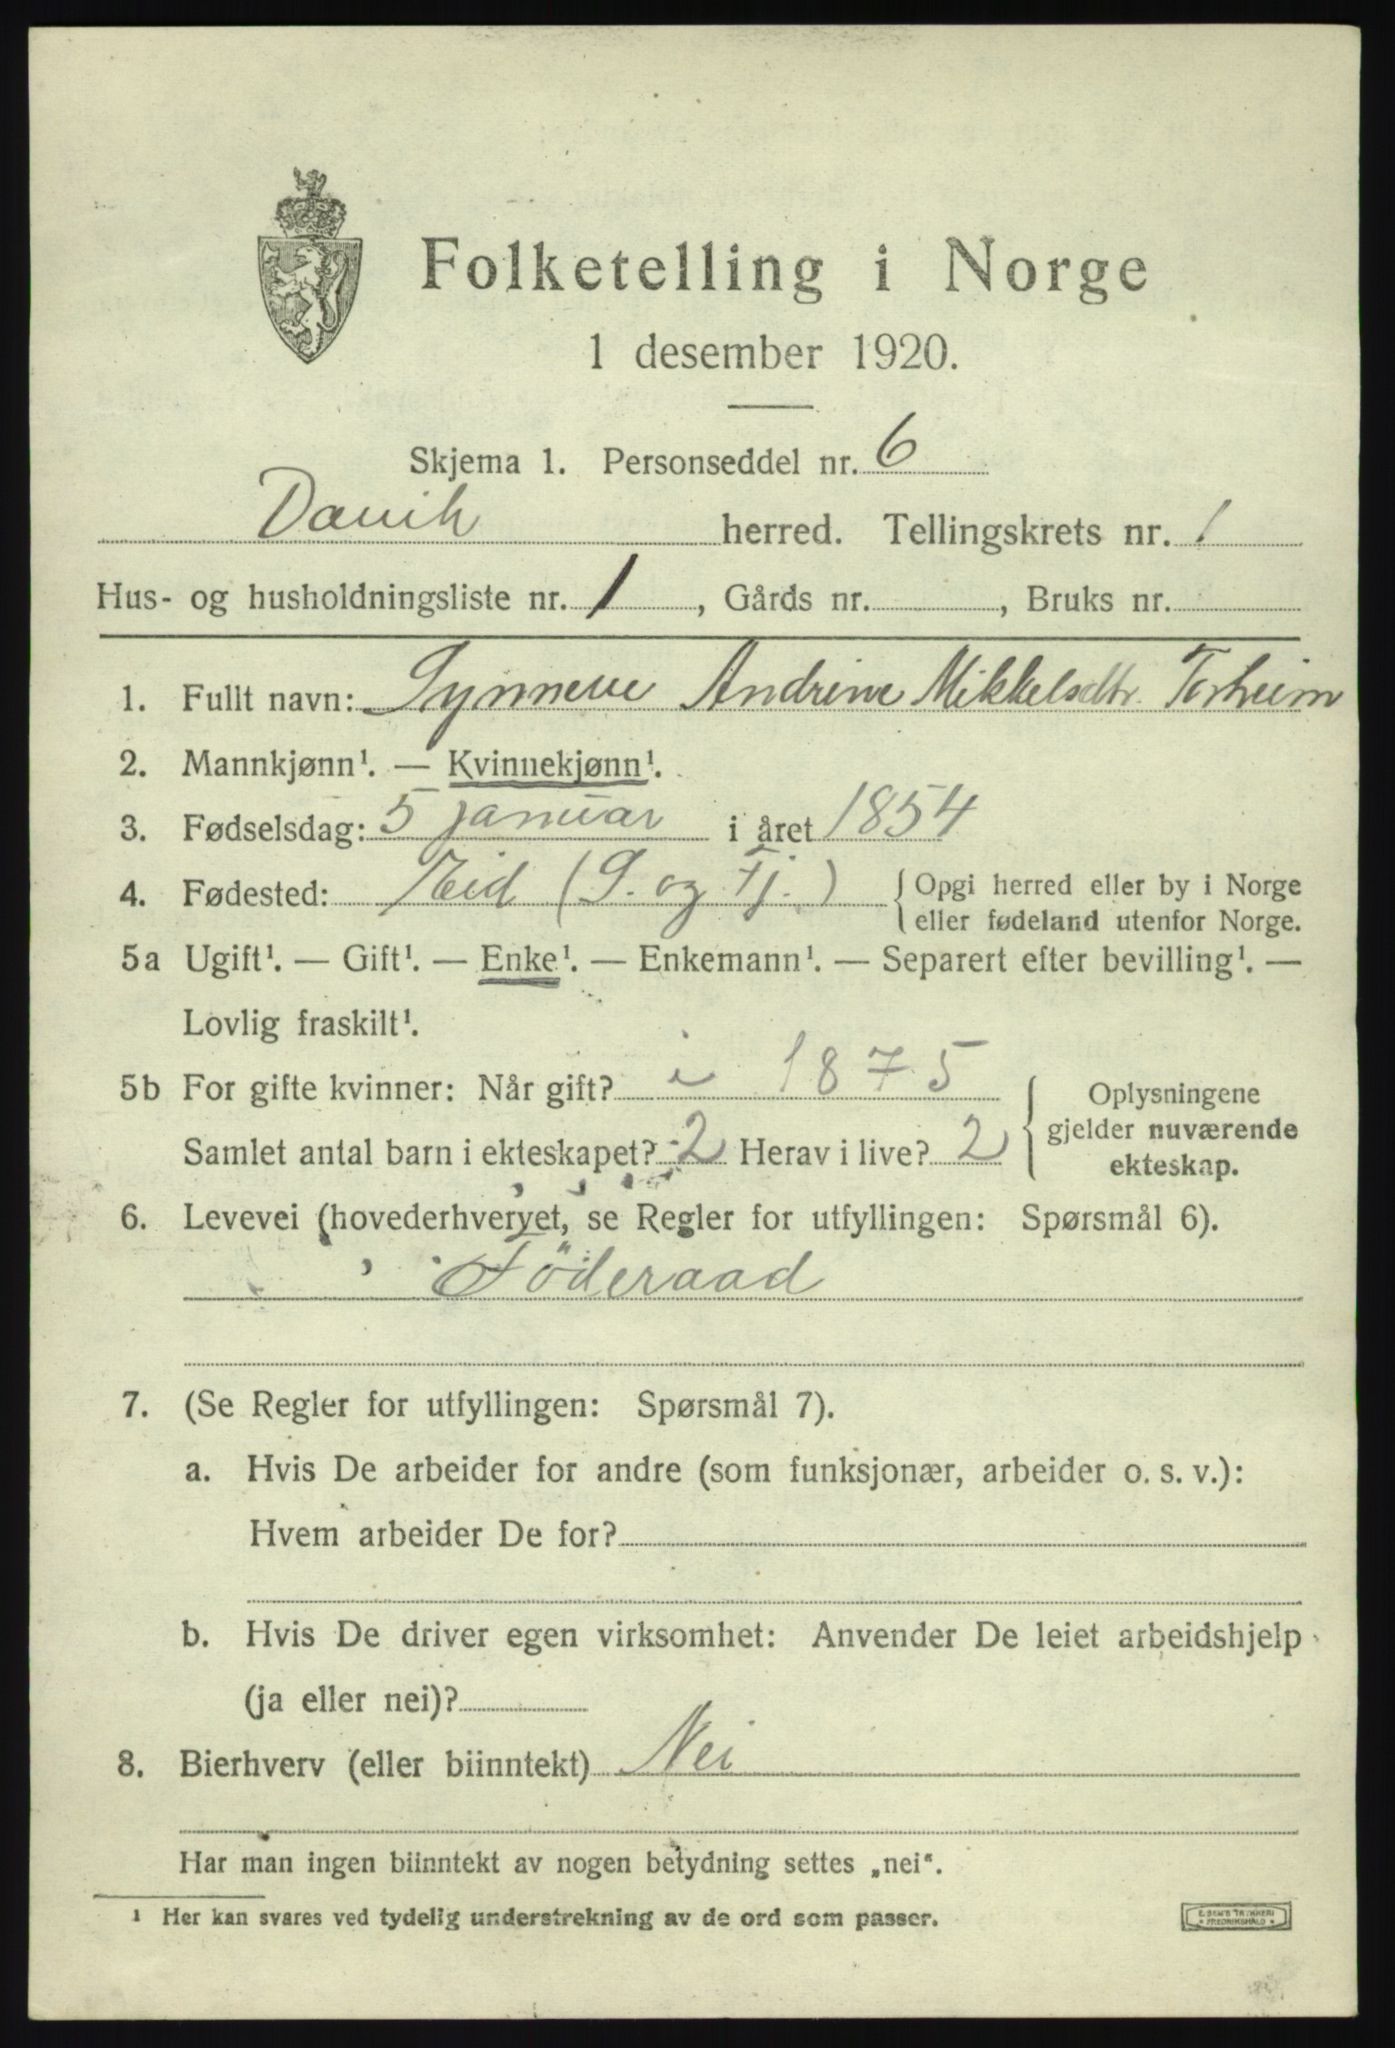 Folketelling i Norge
1 desember 1920.
Skjema 1. Personseddel nr. 6
Davik herred. Tellingskrets nr. 1
Hus- og husholdningsliste nr. 1, Gårds nr. , Bruks nr.
1. Fullt navn: Synneve Andrine Mikkelsdtr. Torheim
2. Mannkjønn¹. — Kvinnekjønn¹.
3. Fødselsdag: 5 januar i året 1854
4. Fødested: Eid (S. og Fj.) { Opgi herred eller by i Norge
eller fødeland utenfor Norge.
5a Ugift¹. — Gift¹. — Enke¹. — Enkemann¹. — Separert efter bevilling¹. —
Lovlig fraskilt¹.
5b For gifte kvinner: Når gift? i 1875
Samlet antal barn i ekteskapet? 2 Herav i live? 2
Oplysningene
gjelder nuværende
ekteskap.
6. Levevei (hovederhvervet, se Regler for utfyllingen: Spørsmål 6).
Föderaad
7. (Se Regler for utfyllingen: Spørsmål 7).
a. Hvis De arbeider for andre (som funksjonær, arbeider o. s. v.):
Hvem arbeider De for?
b. Hvis De driver egen virksomhet: Anvender De leiet arbeidshjelp
(ja eller nei)?
8. Bierhverv (eller biinntekt) Nei
Har man ingen biinntekt av nogen betydning settes „nei".
¹ Her kan svares ved tydelig understrekning av de ord som passer.
FREDRIKSHALD